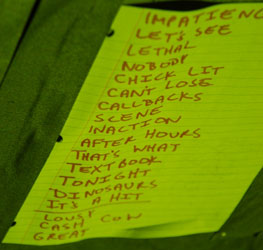 IMPATIENC
LET'S SEE
LETHAL
NOBODY
CHICK LIT
CANT LOSE
CALLBACKS
SCENE
INACTION
AFTER HOURS
THAT'S WHAT
TEXTBOOK
TONIGHT
DINOSAURS
IT'S A HIT
LOUSY
CASH COW
GREAT